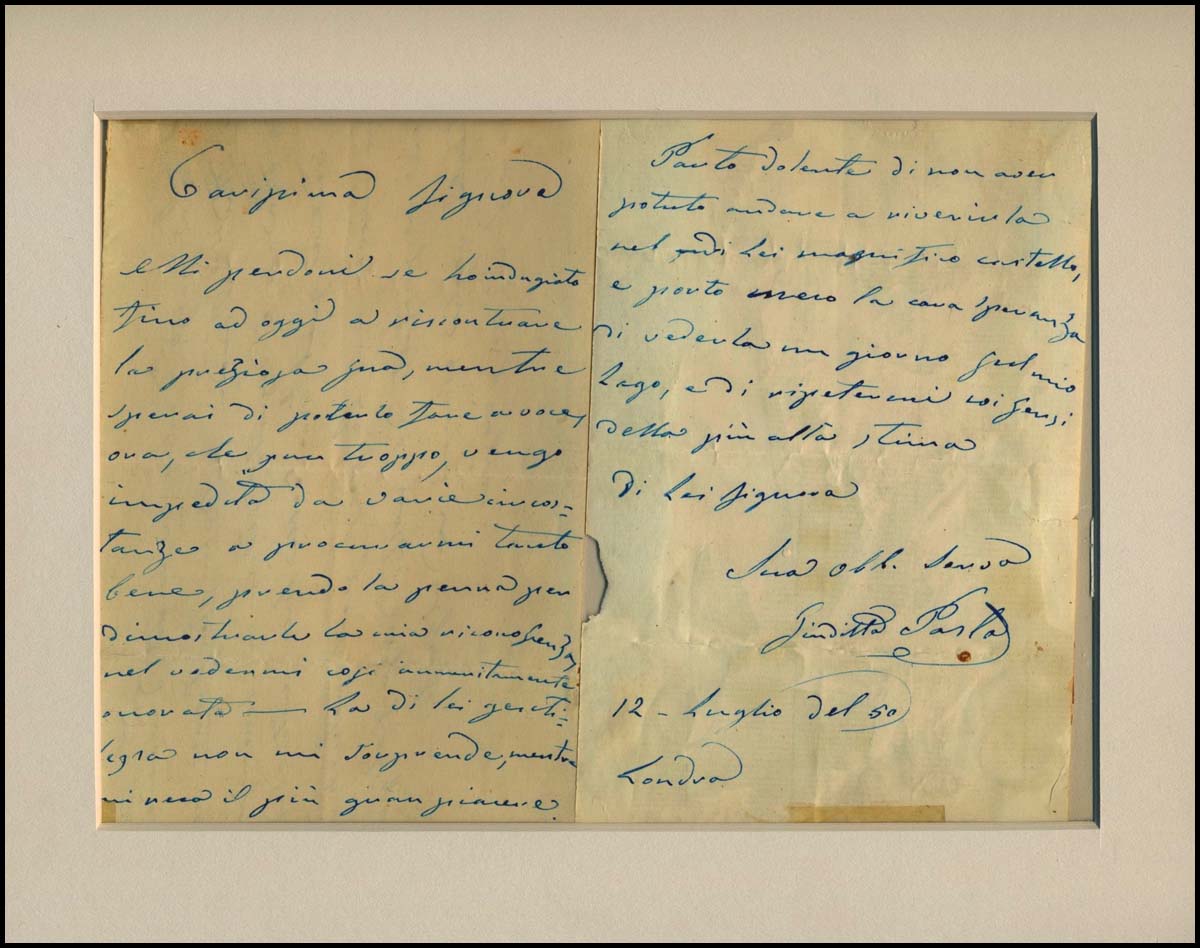 Carissima Signora
Mi perdoni se ho indugiato
fino ad oggi a riscontrare
la preziosa sua, mentre
sperai di poterlo fare a voce,
ora, che pur troppo, vengo
impedita da varie circos-
tanze a procurarmi tanto
bene, prendo la penna per
dimostrarle la mia riconoscenza,
nel vedermi così immeritamente
onorata — La di lei genti-
lezza non mi sorprende, mentre
mi recò il più gran piacere.
Parto dolente di non aver
potuto andare a riverirla
nel di Lei magnifico castello,
e porto meco la cara speranza
di vederla un giorno sul mio
Lago, e di ripetermi coi sensi
della più alta stima
di Lei Signora
Sua obb. Serva
Giuditta Pasta
12 - Luglio del 50
Londra